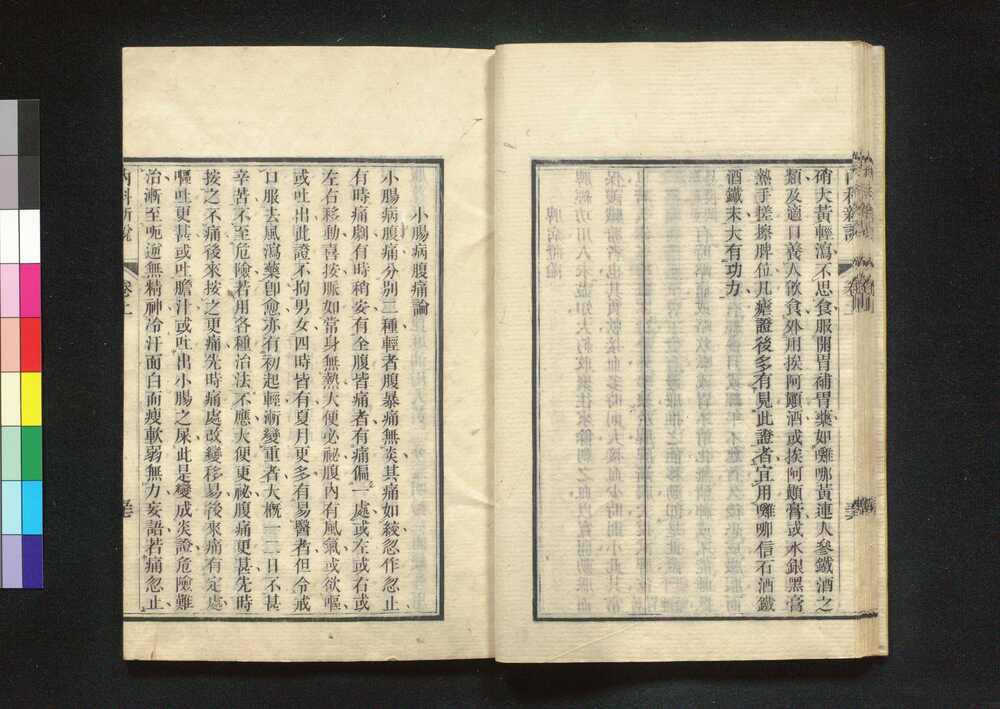 硝大黃輕瀉不思食服開胃補胃藥如囄哪黃連人參鐵酒之
類及適口養人飲食外用挨阿顚酒或挨阿顚膏或水銀黑膏
熱手搓擦脾位凡瘧證後多有見此證者宜用囄哪信石酒鐵
酒鐵末大有功力
小腸病腹痛論
小腸病腹痛分別三種輕者腹暴痛無炎其痛如絞忽作忽止
有時痛劇有時稍安有全腹皆痛者有痛偏一處或左或右或
左右移動喜按脈如常身無熱大便必祕腹內有風氣或欲嘔
或吐出此證不拘男女四時皆有夏月更多有易醫者但令戒
口服去風瀉藥卽愈亦有初起輕漸變重者大槪一二日不甚
辛苦不至危險若用各種治法不應大便更祕腹痛更甚先時
按之不痛後來按之更痛先時痛處改變移易後來痛有定處
嘔吐更甚或吐膽汁或吐出小腸之屎此是變成炎證危險難
治漸至呃逆無精神冷汗面白面瘦軟弱無力妄語若痛忽止
內科新說 卷上